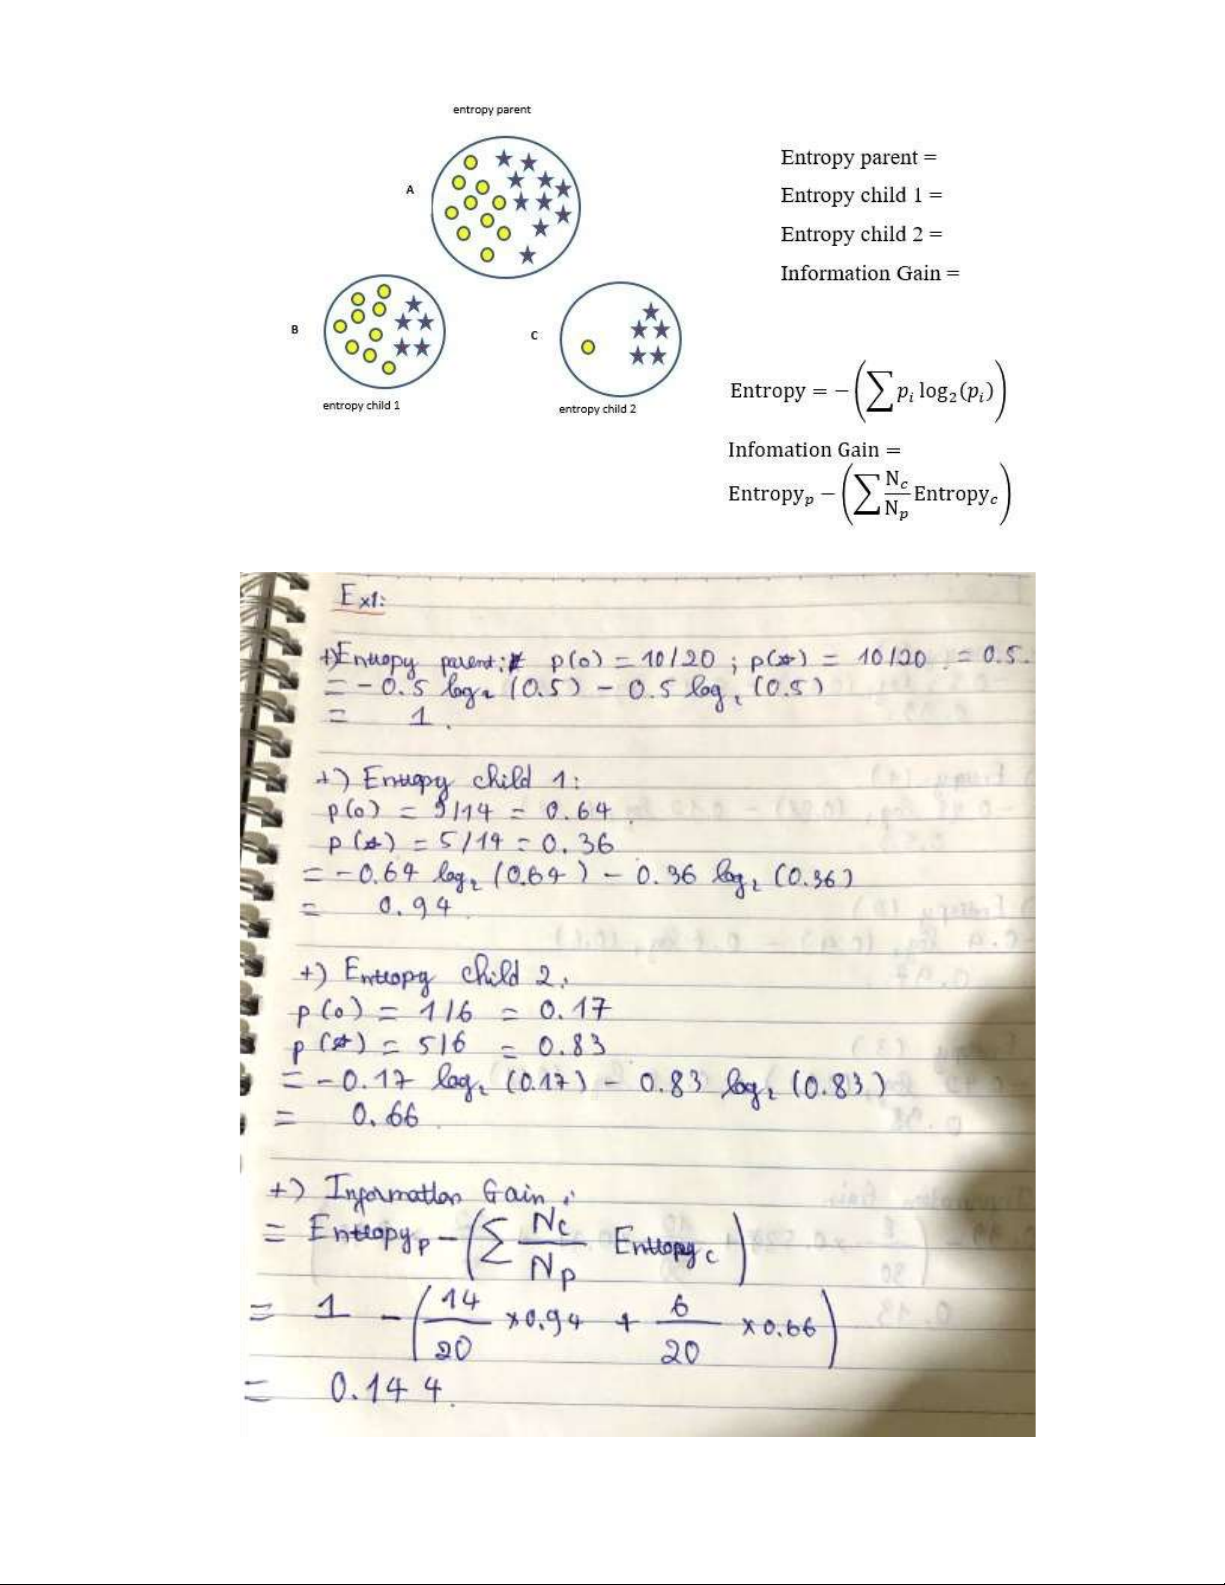 entropy parent
A
B
entropy child 1
C
entropy child 2
Entropy parent =
Entropy child 1 =
Entropy child 2 =
Information Gain =
Entropy = −(∑ pᵢ log₂(pᵢ))
Infomation Gain =
Entropyₚ − (∑ N꜀/Nₚ Entropy꜀)
Ex1:
+) Entropy parent: p(o) = 10/20 ; p(☆) = 10/20 = 0.5.
= − 0.5 log₂ (0.5) − 0.5 log₂ (0.5)
= 1.
+) Entropy child 1:
p(o) = 9/14 = 0.64.
p(☆) = 5/14 = 0.36
= −0.64 log₂ (0.64) − 0.36 log₂ (0.36)
= 0.94
+) Entropy child 2:
p(o) = 1/6 = 0.17
p(☆) = 5/6 = 0.83
= −0.17 log₂ (0.17) − 0.83 log₂ (0.83)
= 0.66.
+) Information Gain:
= Entropyₚ − (∑ N꜀/Nₚ Entropy꜀)
= 1 − (14/20 ×0.94 + 6/20 ×0.66)
= 0.144.